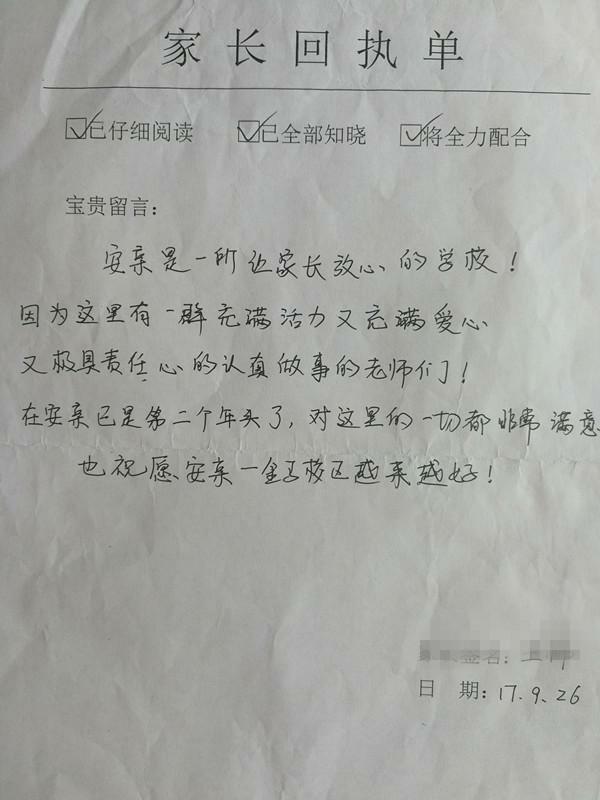 家长回执单
☑已仔细阅读 ☑已全部知晓 ☑将全力配合
宝贵留言：
安亲是一所让家长放心的学校！
因为这里有一群充满活力又充满爱心
又极具责任心的认真做事的老师们！
在安亲已是第二个年头了，对这里的一切都非常满意
也祝愿安亲一金子校区越来越好！
签名：
日 期：17.9.26